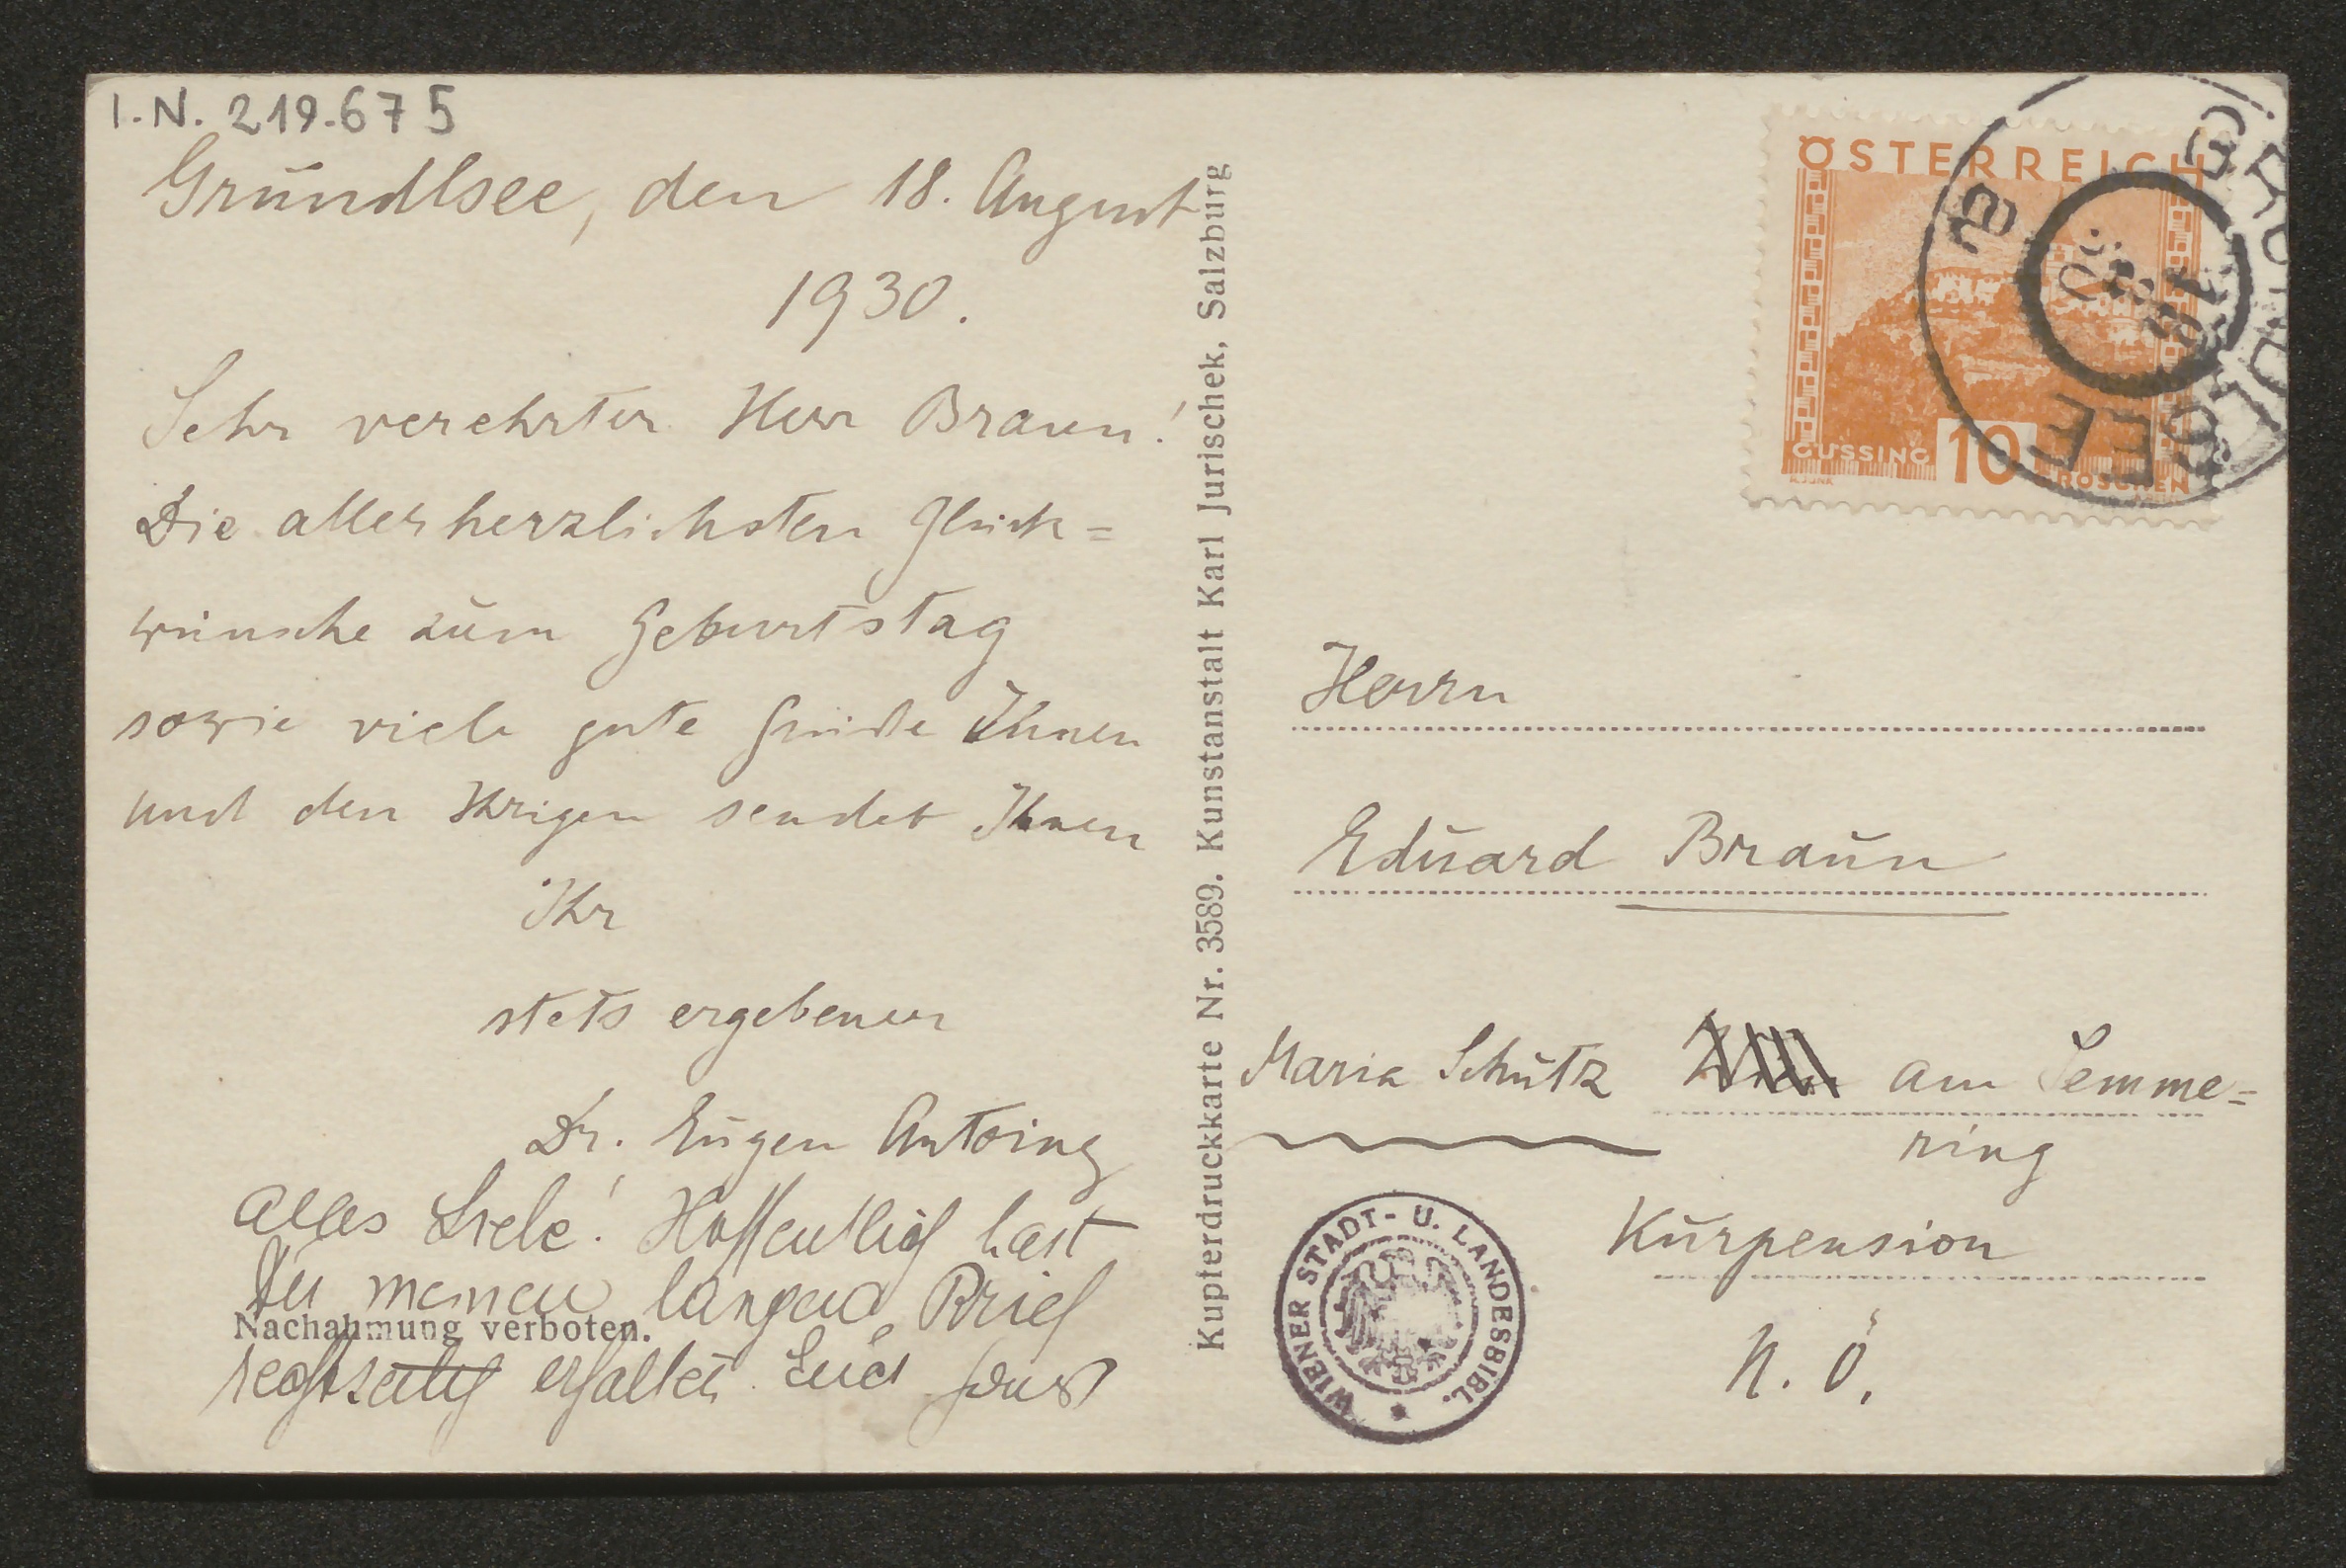 I.N. 219.675
Grundlsee, den 18. August
1930.
Sehr verehrter Herr Braun!
Die allerherzlichsten Glück=
wünsche zum Geburtstag
sowie viele gute Grüße Ihnen
und den Ihrigen sendet Ihnen
Ihr
stets ergebener
Dr. Eugen Antoine
Alles Liebe! Hoffentlich hast
Du meinen langen Brief
Nachahmung verboten.
rechtzeitig erhalten.
Kupferdruckkarte Nr. 3589. Kunstanstalt Karl Jurischek, Salzburg
ÖSTERREICH
GÜSSING 10 GROSCHEN
GRUNDLSEE
Herrn
Eduard Braun
Maria Schutz am Semme=
ring
Kurpension
N. Ö.
WIENER STADT- U. LANDESBIBL.